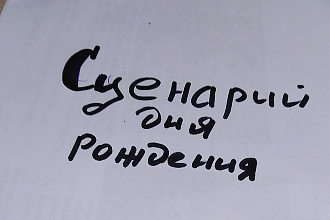 Сценарий
дня
рождения